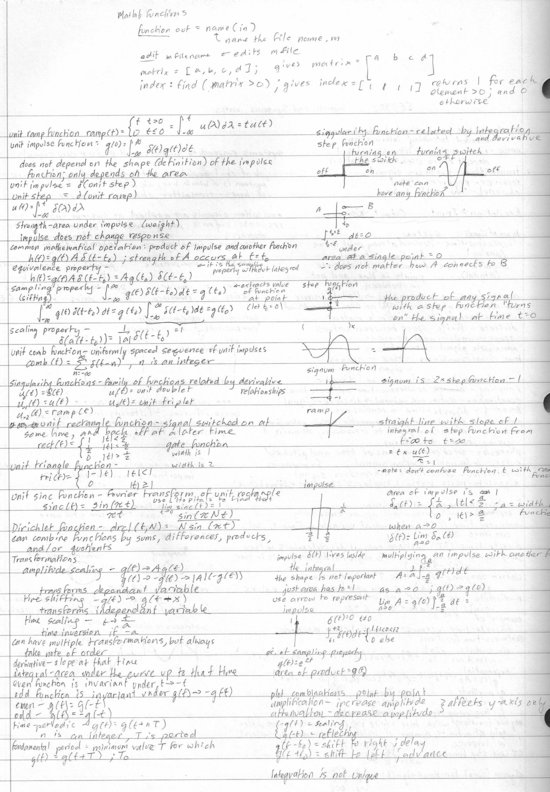 Matlab Functions
function out = name(in)
name the file name.m
edit mfilename - edits mfile
matrix = [a, b, c, d]; gives matrix = [a b c d]
index = find(matrix > 0); gives index = [1 1 1 1] returns 1 for each
element > 0; and 0
otherwise
unit ramp function ramp(t) = {t t>0 = ∫ u(λ)dλ = t u(t)
0 t≤0
unit impulse function: g(0) = ∫ δ(t)g(t)dt
does not depend on the shape (definition) of the impulse
function; only depends on the area
unit impulse = ∂(unit step)
unit step = ∂(unit ramp)
u(t) = ∫ δ(λ)dλ
strength - area under impulse (weight)
impulse does not change response
common mathematical operation: product of impulse and another function
h(t) = g(t) A δ(t-t₀); strength of A occurs at t=t₀
equivalence property - it is the sampling
property without integral
h(t) = g(t) A δ(t-t₀) = A g(t₀) δ(t-t₀)
sampling property - ∫ g(t) δ(t-t₀)dt = g(t₀) extracts value
(sifting) of function
at point
∫ g(t) δ(t-t₀)dt = g(t₀) ∫ δ(t-t₀)dt = g(t₀) (let t₀=0)
= 1
scaling property -
δ(a(t-t₀)) = 1/|a| δ(t-t₀)
unit comb function - uniformly spaced sequence of unit impulses
comb(t) = Σ δ(t-n), n is an integer
n=-∞
singularity functions - family of functions related by derivative
relationships
u₀(t) = δ(t) u₁(t) = unit doublet
u₋₁(t) = u(t) u₂(t) = unit triplet
u₋₂(t) = ramp(t)
unit rectangle function - signal switched on at
some time, and back off at a later time
rect(t) = {1 |t| < 1/2 gate function
1/2 |t| = 1/2 width is 1
0 |t| > 1/2
unit triangle function - width is 2
tri(t) = {1-|t| |t|<1
0 |t|≥1
unit sinc function - fourier transform of unit rectangle
sinc(t) = sin(πt)/πt use L'Hopital's to find that
lim sinc(t) = 1
Dirichlet function - drcl(t,N) = sin(πNt)/N sin(πt)
can combine functions by sums, differences, products,
and/or quotients
Transformations
amplitude scaling - g(t) → A g(t)
g(t) → -g(t) → |A|(-g(t))
transforms dependant variable
time shifting - g(t) → g(t-x)
transforms independant variable
time scaling - t → t/a
time inversion if -a
can have multiple transformations, but always
take note of order
derivative - slope at that time
integral - area under the curve up to that time
even function is invariant under t → -t
odd function is invariant under g(t) → -g(-t)
even - g(t) = g(-t)
odd - g(t) = -g(-t)
time-periodic → g(t) = g(t+nT)
n is an integer, T is period
fundamental period - minimum value T for which
g(t) = g(t+T); T₀
singularity function - related by integration
and derivative
step function
turning on turning switch
the switch off
off on on off
note can
have any function
A B
∫ dt = 0
under
area at a single point = 0
∴ does not matter how A connects to B
step function
the product of any signal
with a step function "turns
on" the signal at time t=0
signum function
signum is 2×step function - 1
ramp
straight line with slope of 1
integral of step function from
t=-∞ to t=∞
= t × u(t)
note: don't confuse function t with ramp function
impulse
area of impulse is 1
δₐ(t) = {1/a, |t| < a/2; a = width of
0, |t| > a/2 function
when a → 0
δ(t) = lim δₐ(t)
a→0
impulse δ(t) lives beside
the integral
the shape is not important
just area has to = 1
use arrow to represent
impulse
multiplying an impulse with another
A = 1/a ∫ g(t)dt
as a → 0, g(t) → g(0)
lim A = g(0) 1/a ∫ dt =
δ(t) = 0 t≠0
ex. of sampling property
area of product = g(t₀)
plot combinations point by point
amplification - increase amplitude } affects y-axis only
attenuation - decrease amplitude
-g(t) = scaling
g(-t) = reflecting
g(t-t₀) = shift to right; delay
g(t+t₀) = shift to left; advance
Integration is not unique